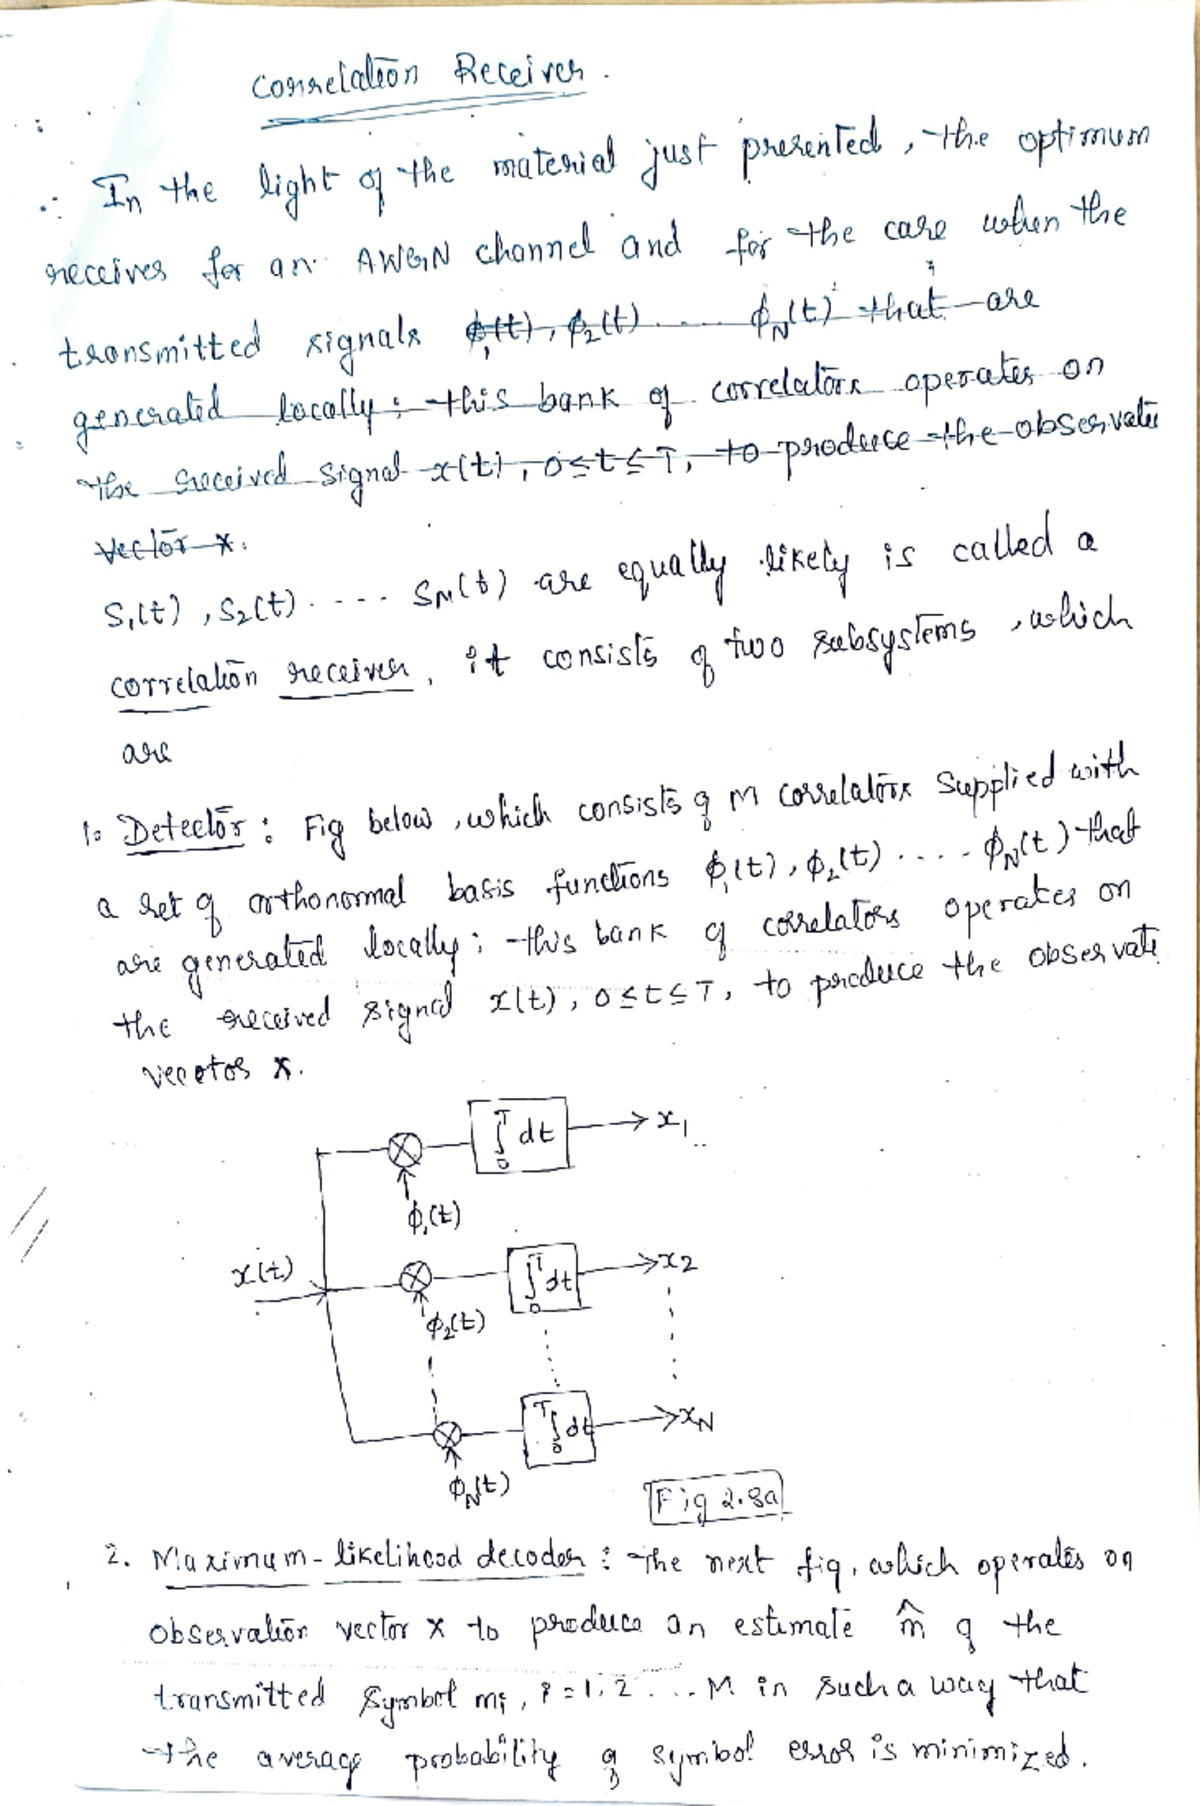 Correlation Receiver.
∴ In the light of the material just presented, the optimum
receives for an AWGN channel and for the case when the
transmitted signals ϕ1(t), ϕ2(t) .... ϕN(t) that are
generated locally; this bank of correlators operates on
the received signal x(t), 0≤t≤T, to produce the observatio
vector x.
S1(t), S2(t) ..... SM(t) are equally likely is called a
correlation receiver, it consists of two subsystems, which
are
1. Detector: Fig below, which consists of M correlators supplied with
a set of orthonormal basis functions ϕ1(t), ϕ2(t) ..... ϕN(t) that
are generated locally; this bank of correlators operates on
the received signal x(t), 0≤t≤T, to produce the observatio
vecotos x.
∫0T dt → x1
ϕ1(t)
x(t)
∫0T dt → x2
ϕ2(t)
∫0T dt → xN
ϕN(t)
Fig 2.8a
2. Maximum-likelihood decoder: The next fig, which operates on
observation vector x to produce an estimate m̂ of the
transmitted symbol mi, i=1,2....M in such a way that
the average probability of symbol error is minimized.